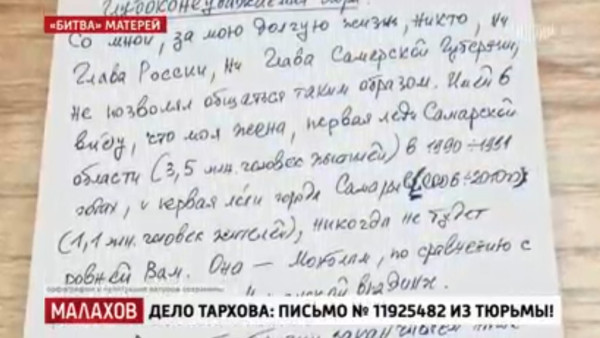 «БИТВА» МАТЕРЕЙ
Со мной, за мою долгую жизнь, никто, ни
Глава России, ни Глава Самарской Губернии,
не позволял общаться таким образом. Имей в
виду, что моя жена, первая леди Самарской
области (3,5 млн. человек жителей) в 1990÷1991
годах, и первая леди города Самары (2006÷2010)
(1,1 млн. человек жителей), никогда не будет
ровней Вам. Она — по сравнению с
впадин
орфография и пунктуация авторов сохранены
МАЛАХОВ
ДЕЛО ТАРХОВА: ПИСЬМО № 11925482 ИЗ ТЮРЬМЫ!